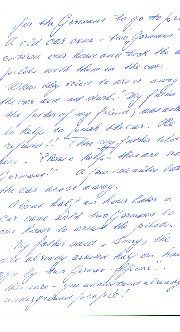 for the Germans to go to pe
A old car came + two Germans
entered our house and took the
pilots with them in the car.
When they tried to drive away
the car did not start! My father
the father of my friend, was asked
to help to push the car. He
refused!! Then my father told
him, "Please help! These are no
Germans!" A few minutes later
the car drove away.
About half an hour later a
car came with two Germans to
our house to arrest the pilots.
My father said, "Sorry, they
are already arrested half an hour
ago by two German officers...
You understand already,
underground people!